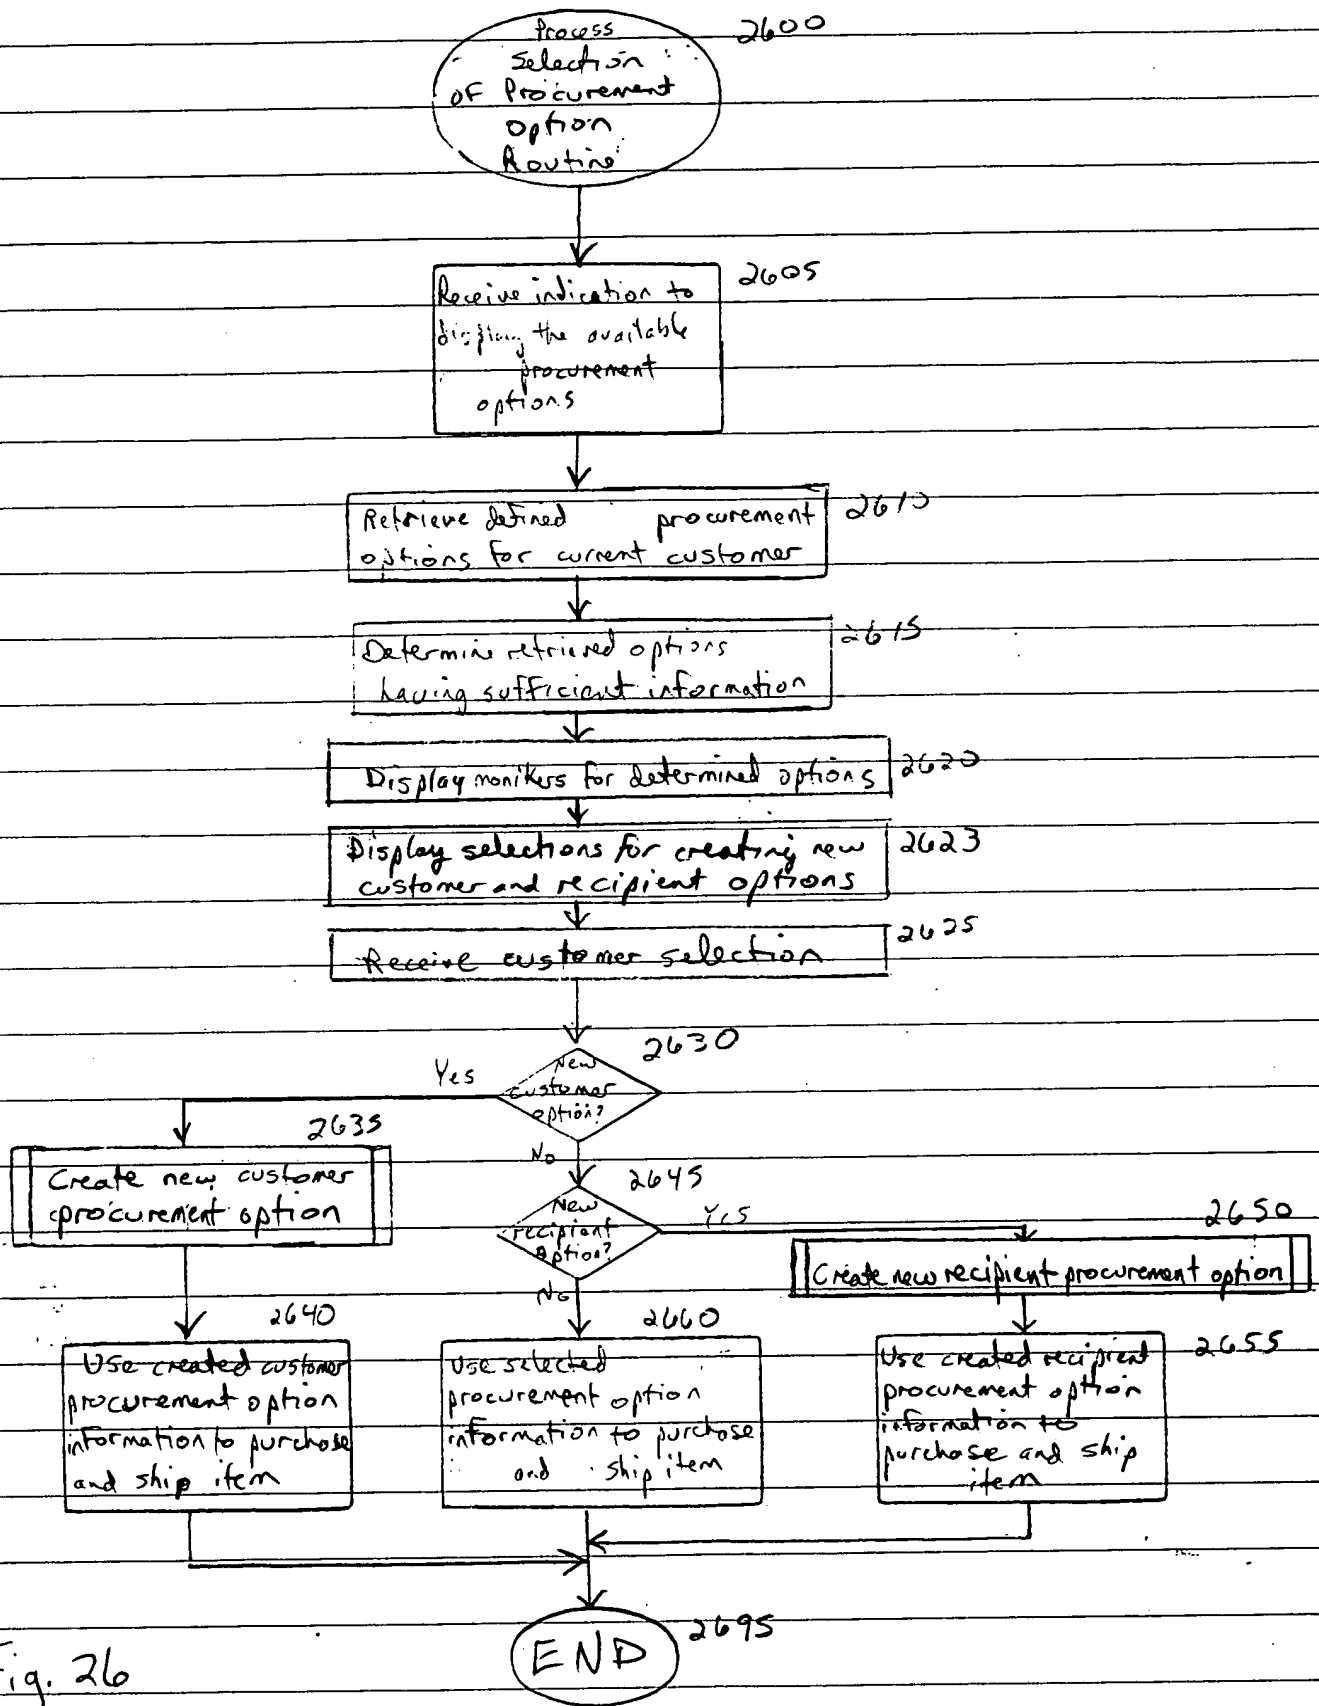 Process
Selection
OF Procurement
Option
Routine
2600
Receive indication to
display the available
procurement
options
2605
Retrieve defined procurement
options for current customer
2610
Determine retrieved options
having sufficient information
2615
Display monikers for determined options
2620
Display selections for creating new
customer and recipient options
2623
Receive customer selection
2625
New
customer
option?
2630
Yes
No
2635
Create new customer
procurement option
2645
New
recipient
option?
Yes
No
2650
Create new recipient procurement option
2640
Use created customer
procurement option
information to purchase
and ship item
2660
Use selected
procurement option
information to purchase
and ship item
2655
Use created recipient
procurement option
information to
purchase and ship
item
END
2695
Fig. 26